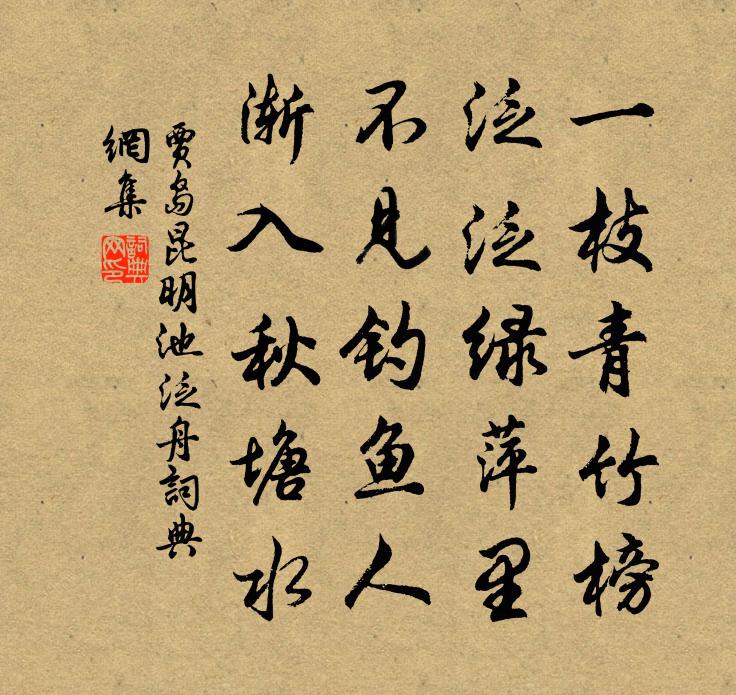 一枝青竹榜
泛泛绿萍里
不见钓鱼人
渐入秋塘水
賈島昆明池泛舟詞典
網集
詞典
网印